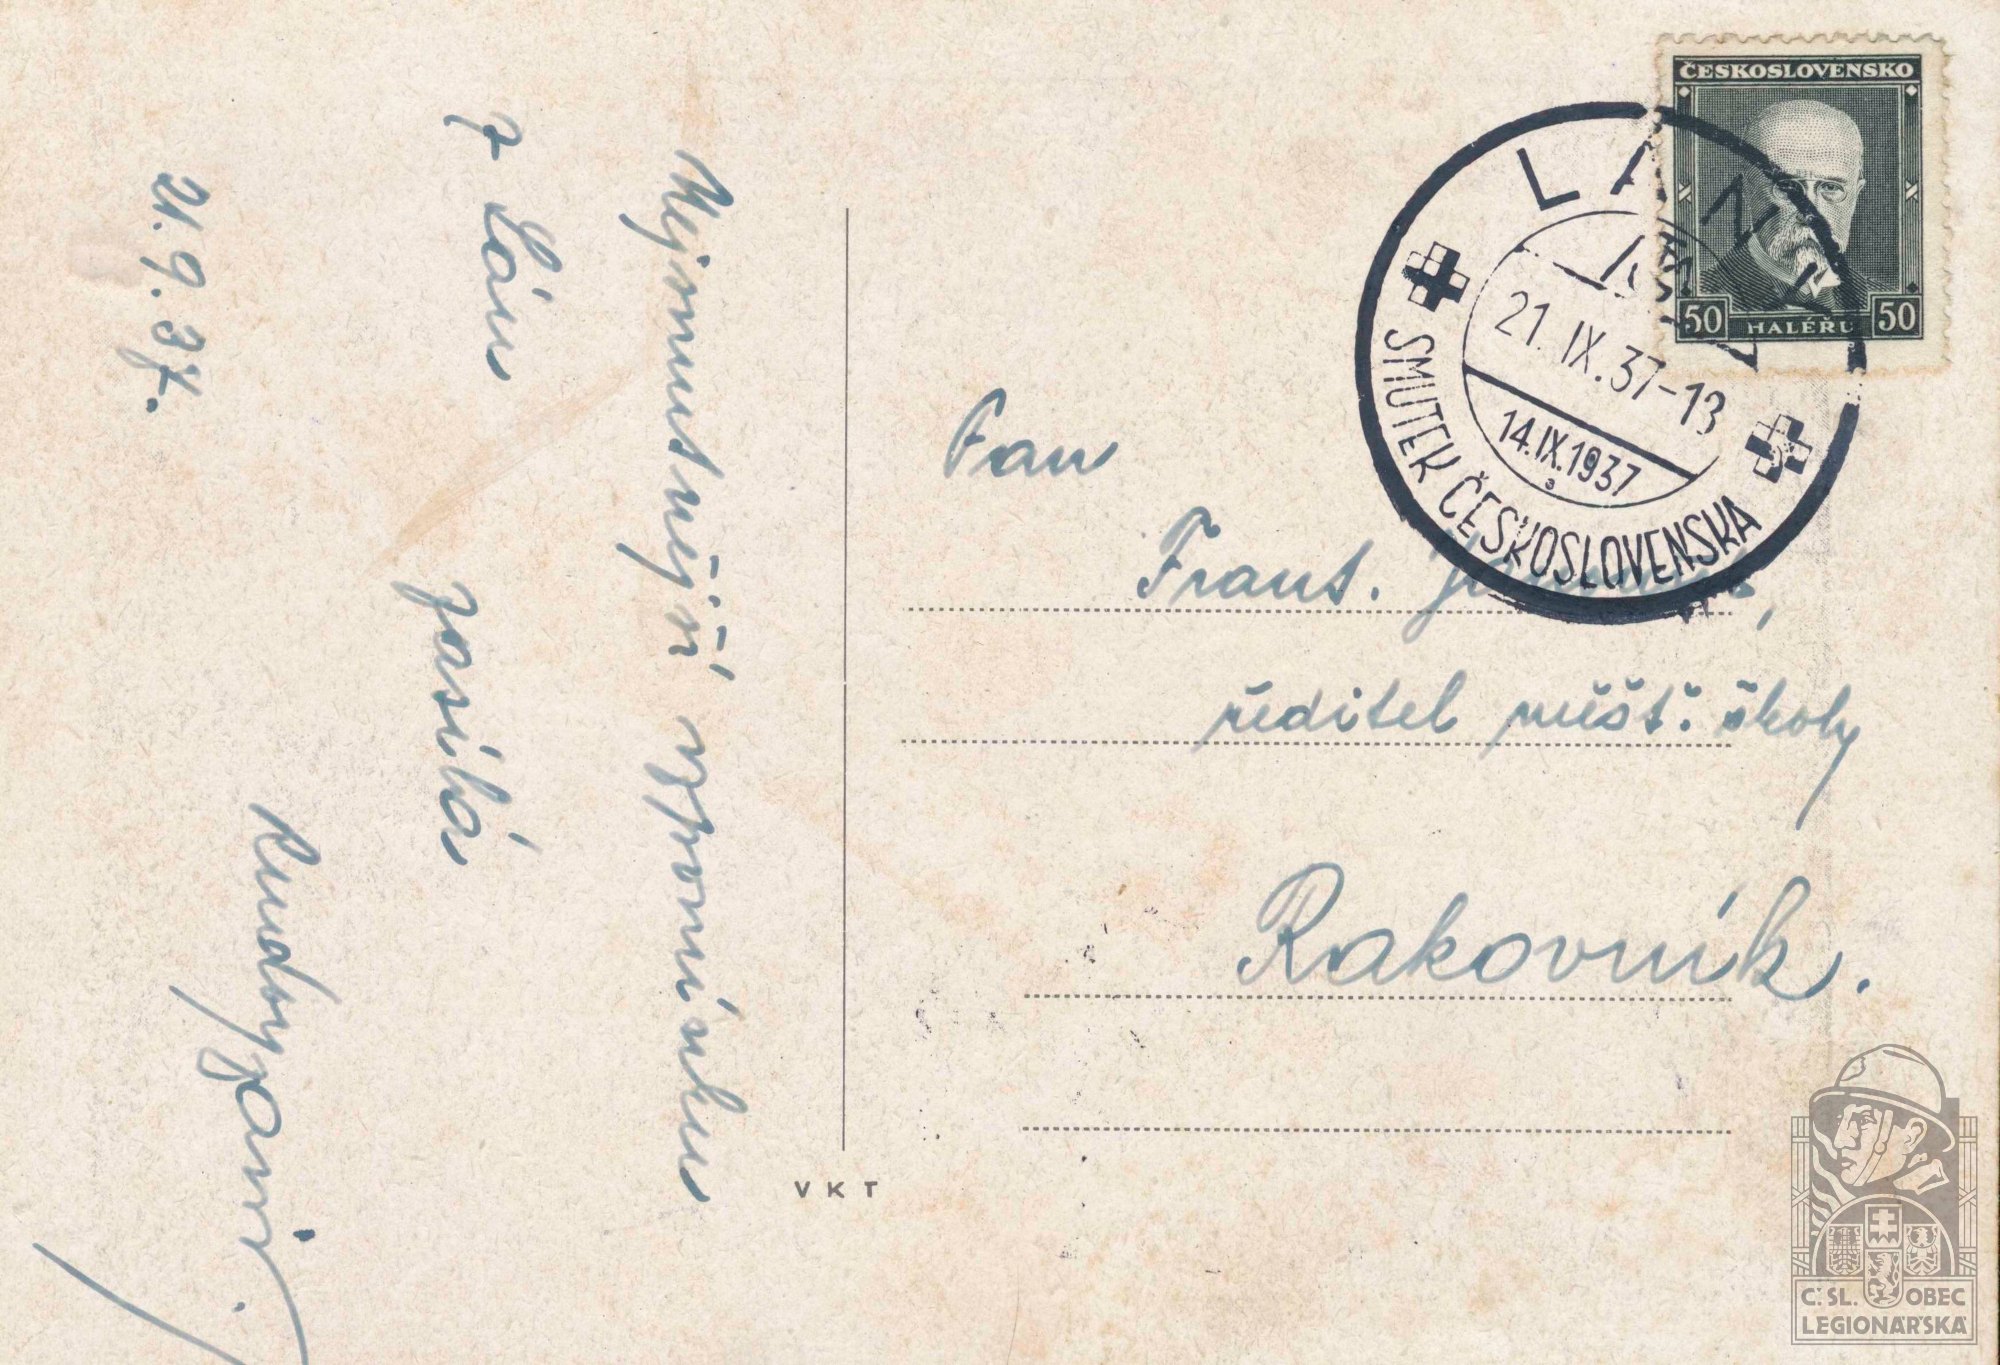 Nejsmutnější vzpomínku
z Lán
zasílá
21. 9. 37.
ČESKOSLOVENSKO
50 HALÉŘŮ 50
LÁNY
21. IX. 37-13
14.IX.1937
SMUTEK ČESKOSLOVENSKA
Pan
Frant.
ředitel měšť. školy
Rakovník.
VKT
Č. SL. OBEC
LEGIONÁŘSKÁ